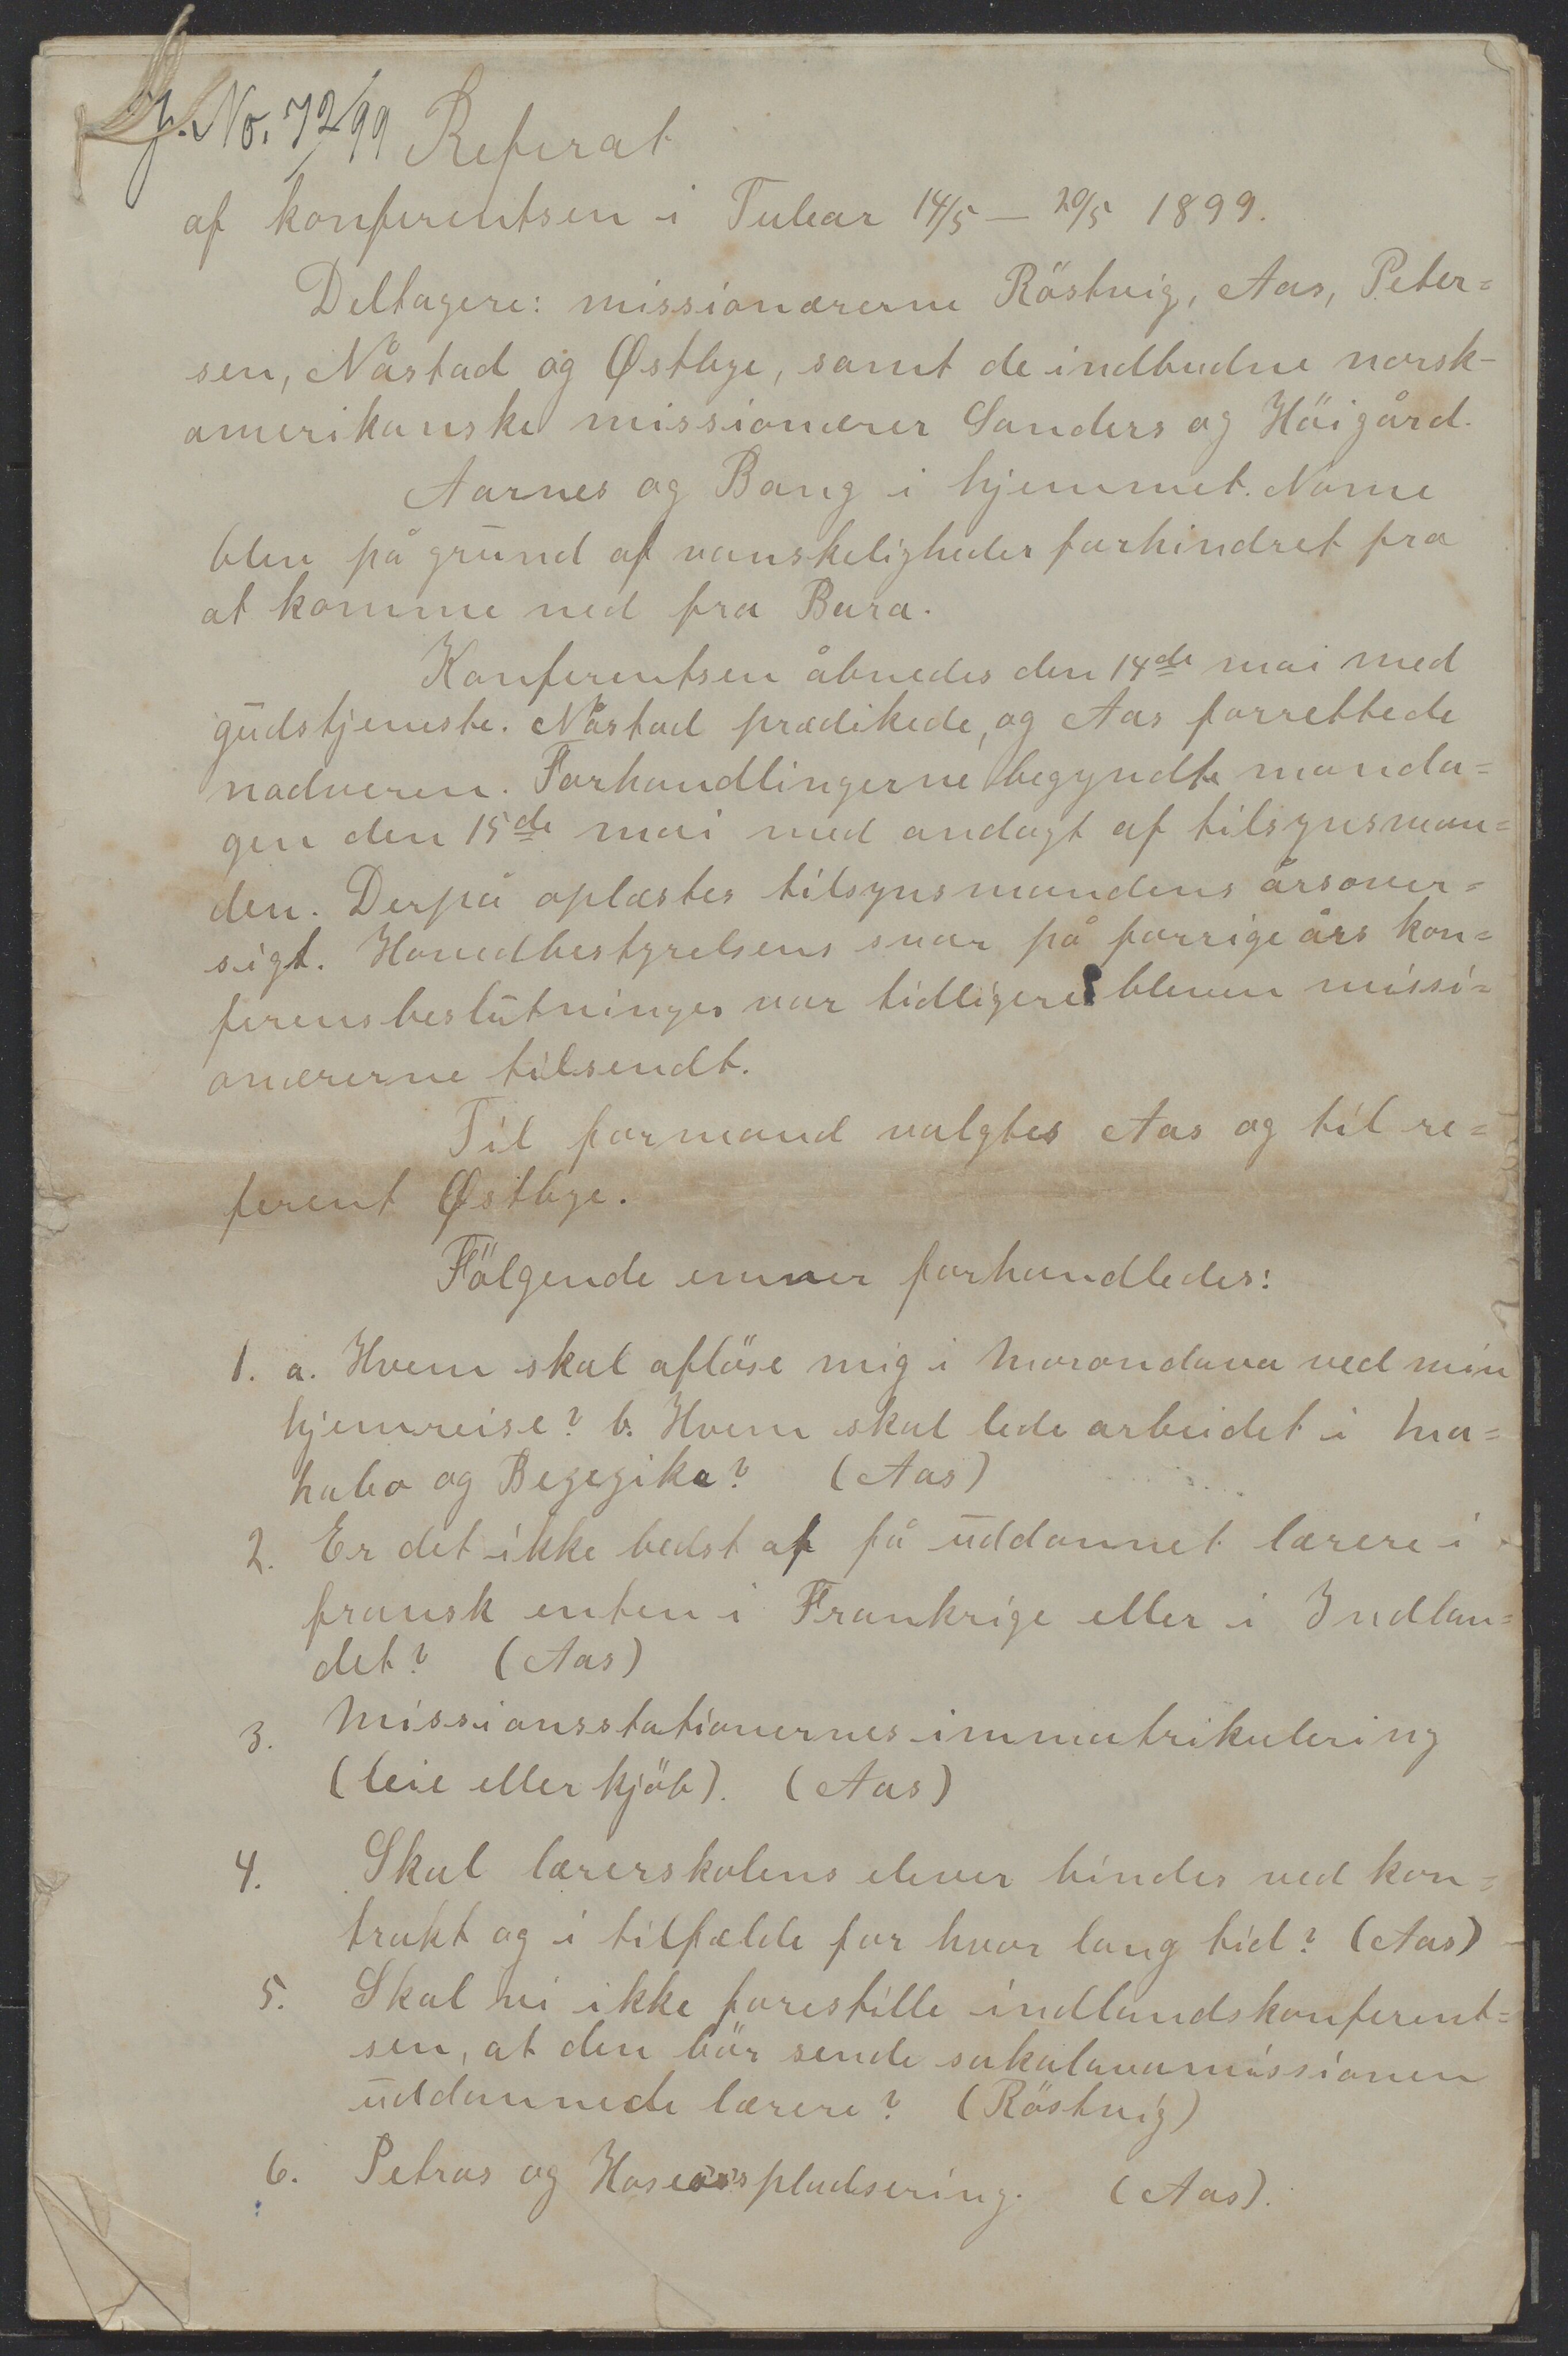 J. No. 72/99 Referat
af konferentsen i Tulear 14/5 — 20/5 1899.
Deltagere: missionærerne Röstvig, Aas, Peter=
sen, Nåstad og Østbye, samt de indbudne norsk-
amerikanske missionærer Sanders og Höigård.
Aarnes og Bang i hjemmet. Nome
blev på grund af vanskeligheder forhindret fra
at komme ned fra Bara.
Konferentsen åbnedes den 14de mai med
gudstjeneste. Nåstad prædikede, og Aas forrettede
nadveren. Forhandlingerne begyndte manda=
gen den 15de mai med andagt af tilsynsman=
den. Derpå oplæstes tilsynsmandens årsover=
sigt. Hovedbestyrelsens svar på forrige års kon=
ferensbeslutninger var tidligere bleven missi=
onærerne tilsendt.
Til formand valgtes Aas og til re=
ferent Østbye.
Fölgende emner forhandledes:
1. a. Hvem skal aflöse mig i Morondava ved min
hjemreise? b. Hvem skal lede arbeidet i Ma=
habo og Bezezika? (Aas)
2. Er det ikke bedst at få uddannet lærere i
fransk enten i Frankrige eller i Indlan=
det? (Aas)
3. Missionsstationernes immatrikulering
(leie eller kjöb). (Aas)
4. Skal lærerskolens elever bindes ved kon=
trakt og i tilfælde for hvor lang tid? (Aas)
5. Skal vi ikke forestille indlandskonferent=
sen, at den bör sende sakalavamissionen
uddannede lærere? (Röstvig)
6. Petrus og Hoseas's pladsering. (Aas).